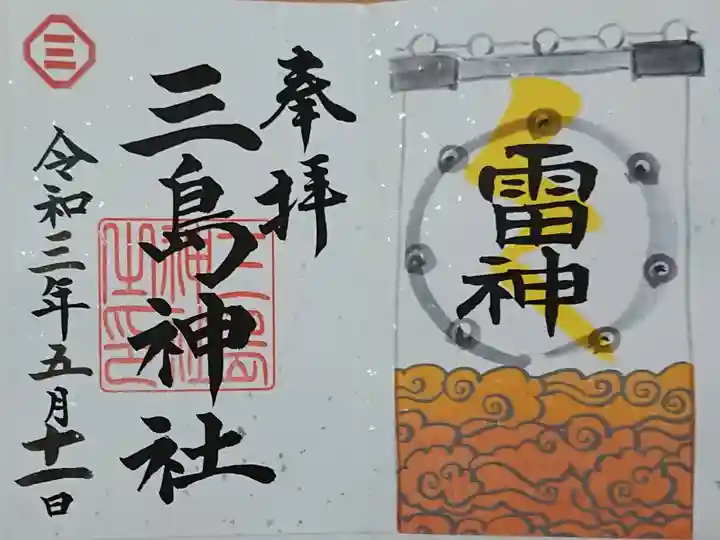 雷神
奉拝
三島神社
三島神社之印
令和三年五月十一日
三